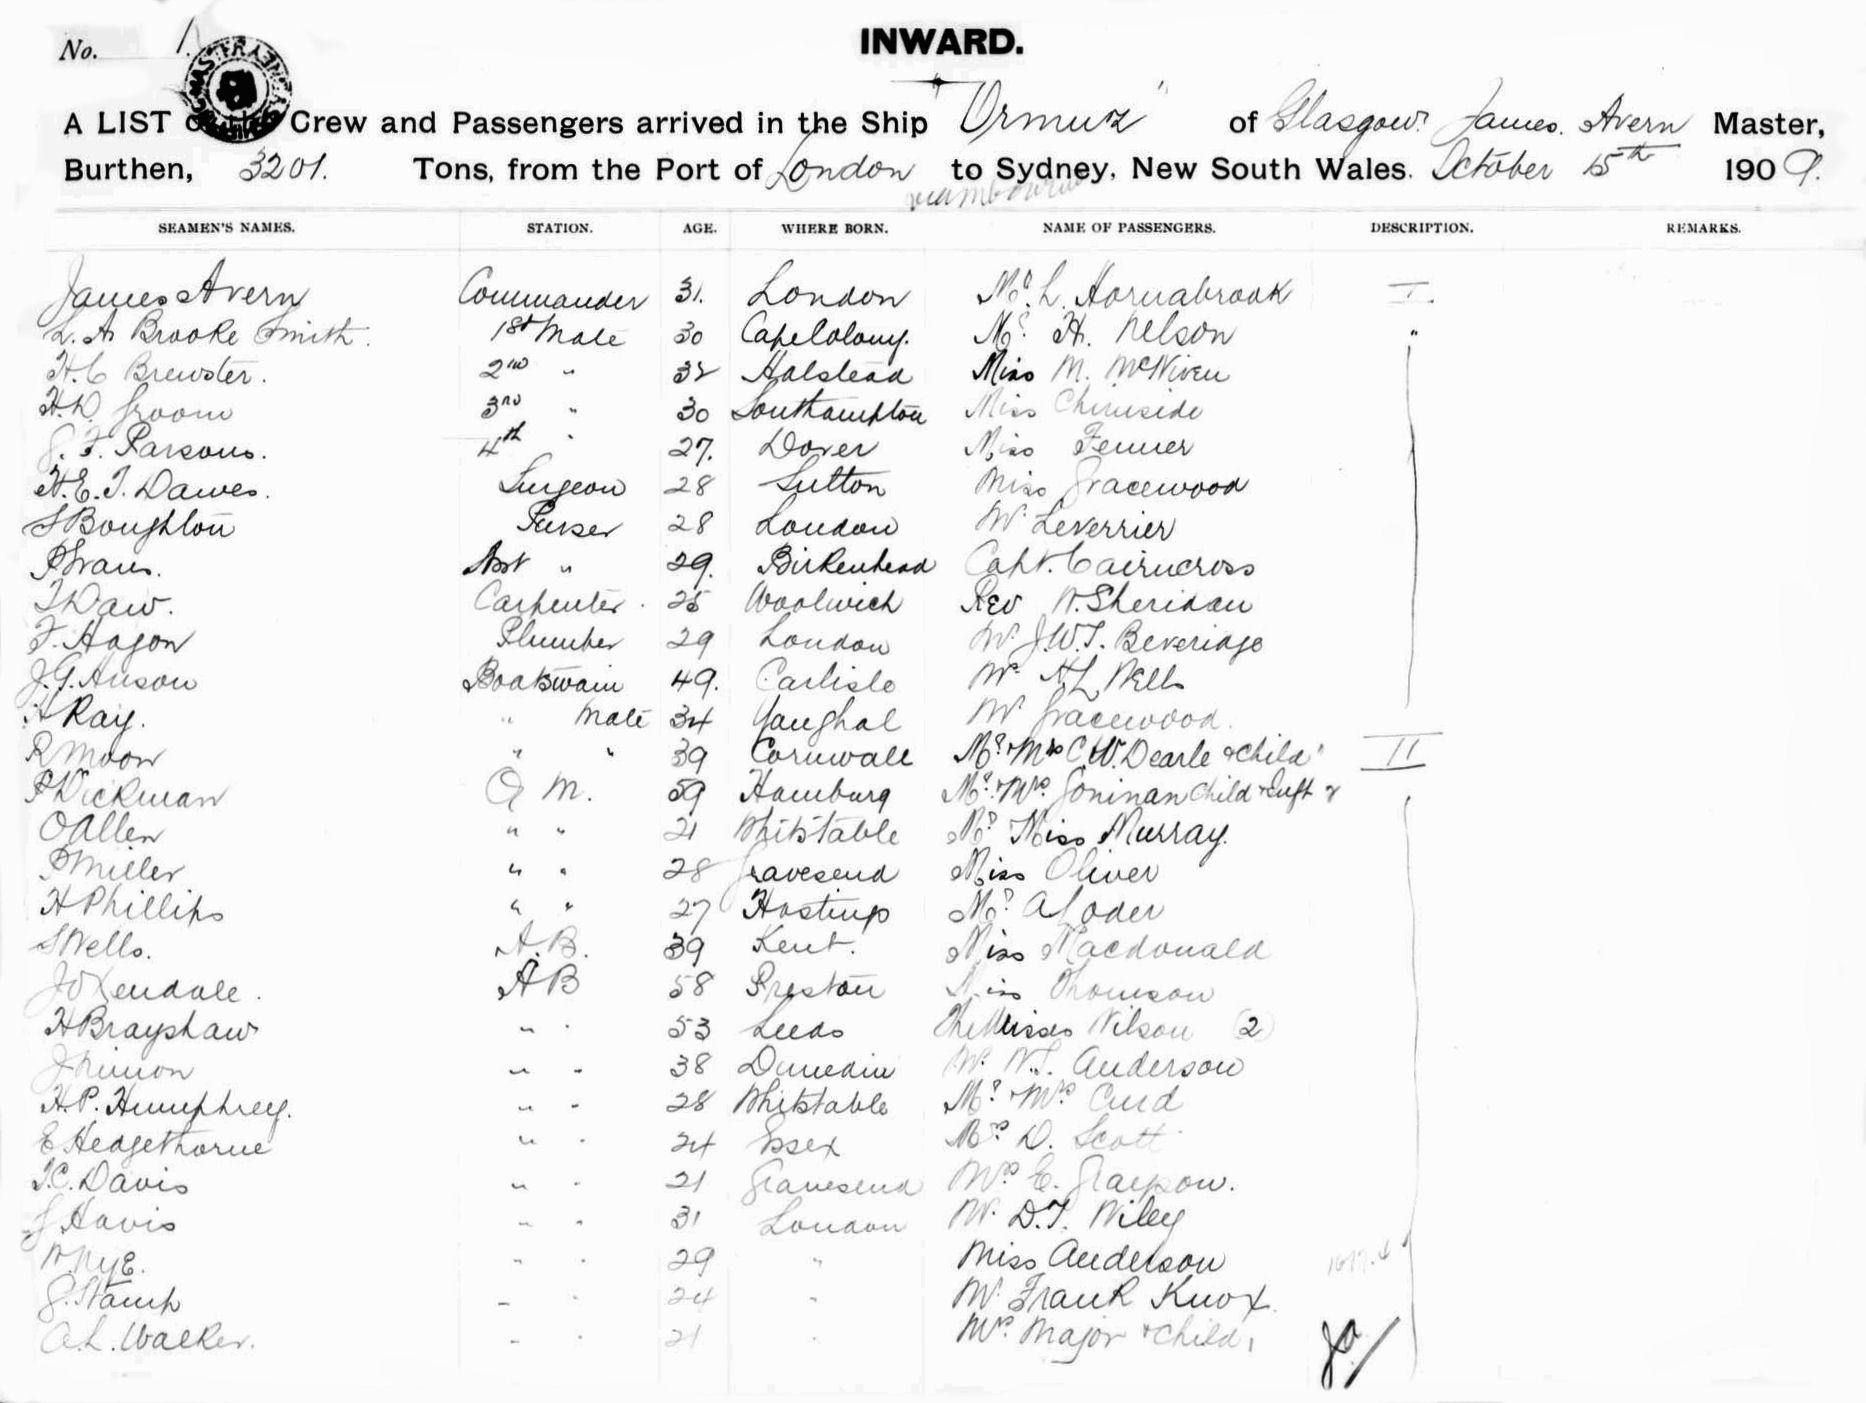 No. 1.
INWARD.
A LIST Crew and Passengers arrived in the Ship "Ormuz" of Glasgow. James Avern Master,
Burthen, 3201. Tons, from the Port of London to Sydney, New South Wales. October 15th 1909.
SEAMEN'S NAMES. STATION. AGE. WHERE BORN. NAME OF PASSENGERS. DESCRIPTION. REMARKS.
James Avern Commander 31. London Mr. L. Hornabrook I.
L. A. Brooke Smith. 1st Mate 30 Cape Colony. Mr. H. Nelson "
H. C Brewster. 2nd " 32 Halstead Miss M. McNiven
H. D. Groom 3rd " 30 Southampton Miss Chirnside
G. F. Parsons. 4th " 27. Dover Miss Fenner
H. E. T. Dawes. Surgeon 28 Sutton Miss Gracewood
S Boughton Purser 28 London Mr Leverrier
Asst " 29. Birkenhead Capt. Cairncross
T Daw. Carpenter. 25 Woolwich Rev W. Sheridan
F. Hagon Plumber 29 London Mr J. W. T. Beveridge
J. G. Anson Boatswain 49. Carlisle Mr H L Wells
A Ray. " Mate 34 Youghal Mr Gracewood.
R Moon " " 39 Cornwall Mr & Mrs C. W. Dearle & child II
P Wickman Q M. 59 Hamburg Mr. & Mrs. Goninan Child & Inft &
O Allen " " 21 Whitstable Mr Miss Murray.
P Miller " " 28 Gravesend Miss Oliver
H Phillips " " 27 Hastings Mr. A Loder
S Wells. A. B. 39 Kent. Miss Macdonald
A B 58 Preston Miss Thomson
H Brayshaw " " 53 Leeds The Misses Wilson (2)
" " 38 Dunedin Mr. W. S. Anderson
H. P. Humphrey. " " 28 Whitstable Mr. & Mrs Curd
E Hedgethorne " " 24 Essex D. Scott
T. C. Davis " " 21 Gravesend Mrs E.
Havis " " 31 London Mr. D. T. Wiley
W. Nye. " " 29 " Miss Anderson
G. Stamp " " 24 " Mr. Frank Knox.
A. L. Walker. " " 21 " Mrs. Major & child,